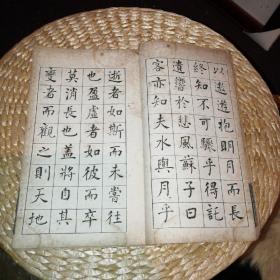 以遨遊抱明月而長
終知不可驟乎得託
遺響於悲風蘇子曰
客亦知夫水與月乎
逝者如斯而未嘗往
也盈虛者如彼而卒
莫消長也蓋將自其
變者而觀之則天地